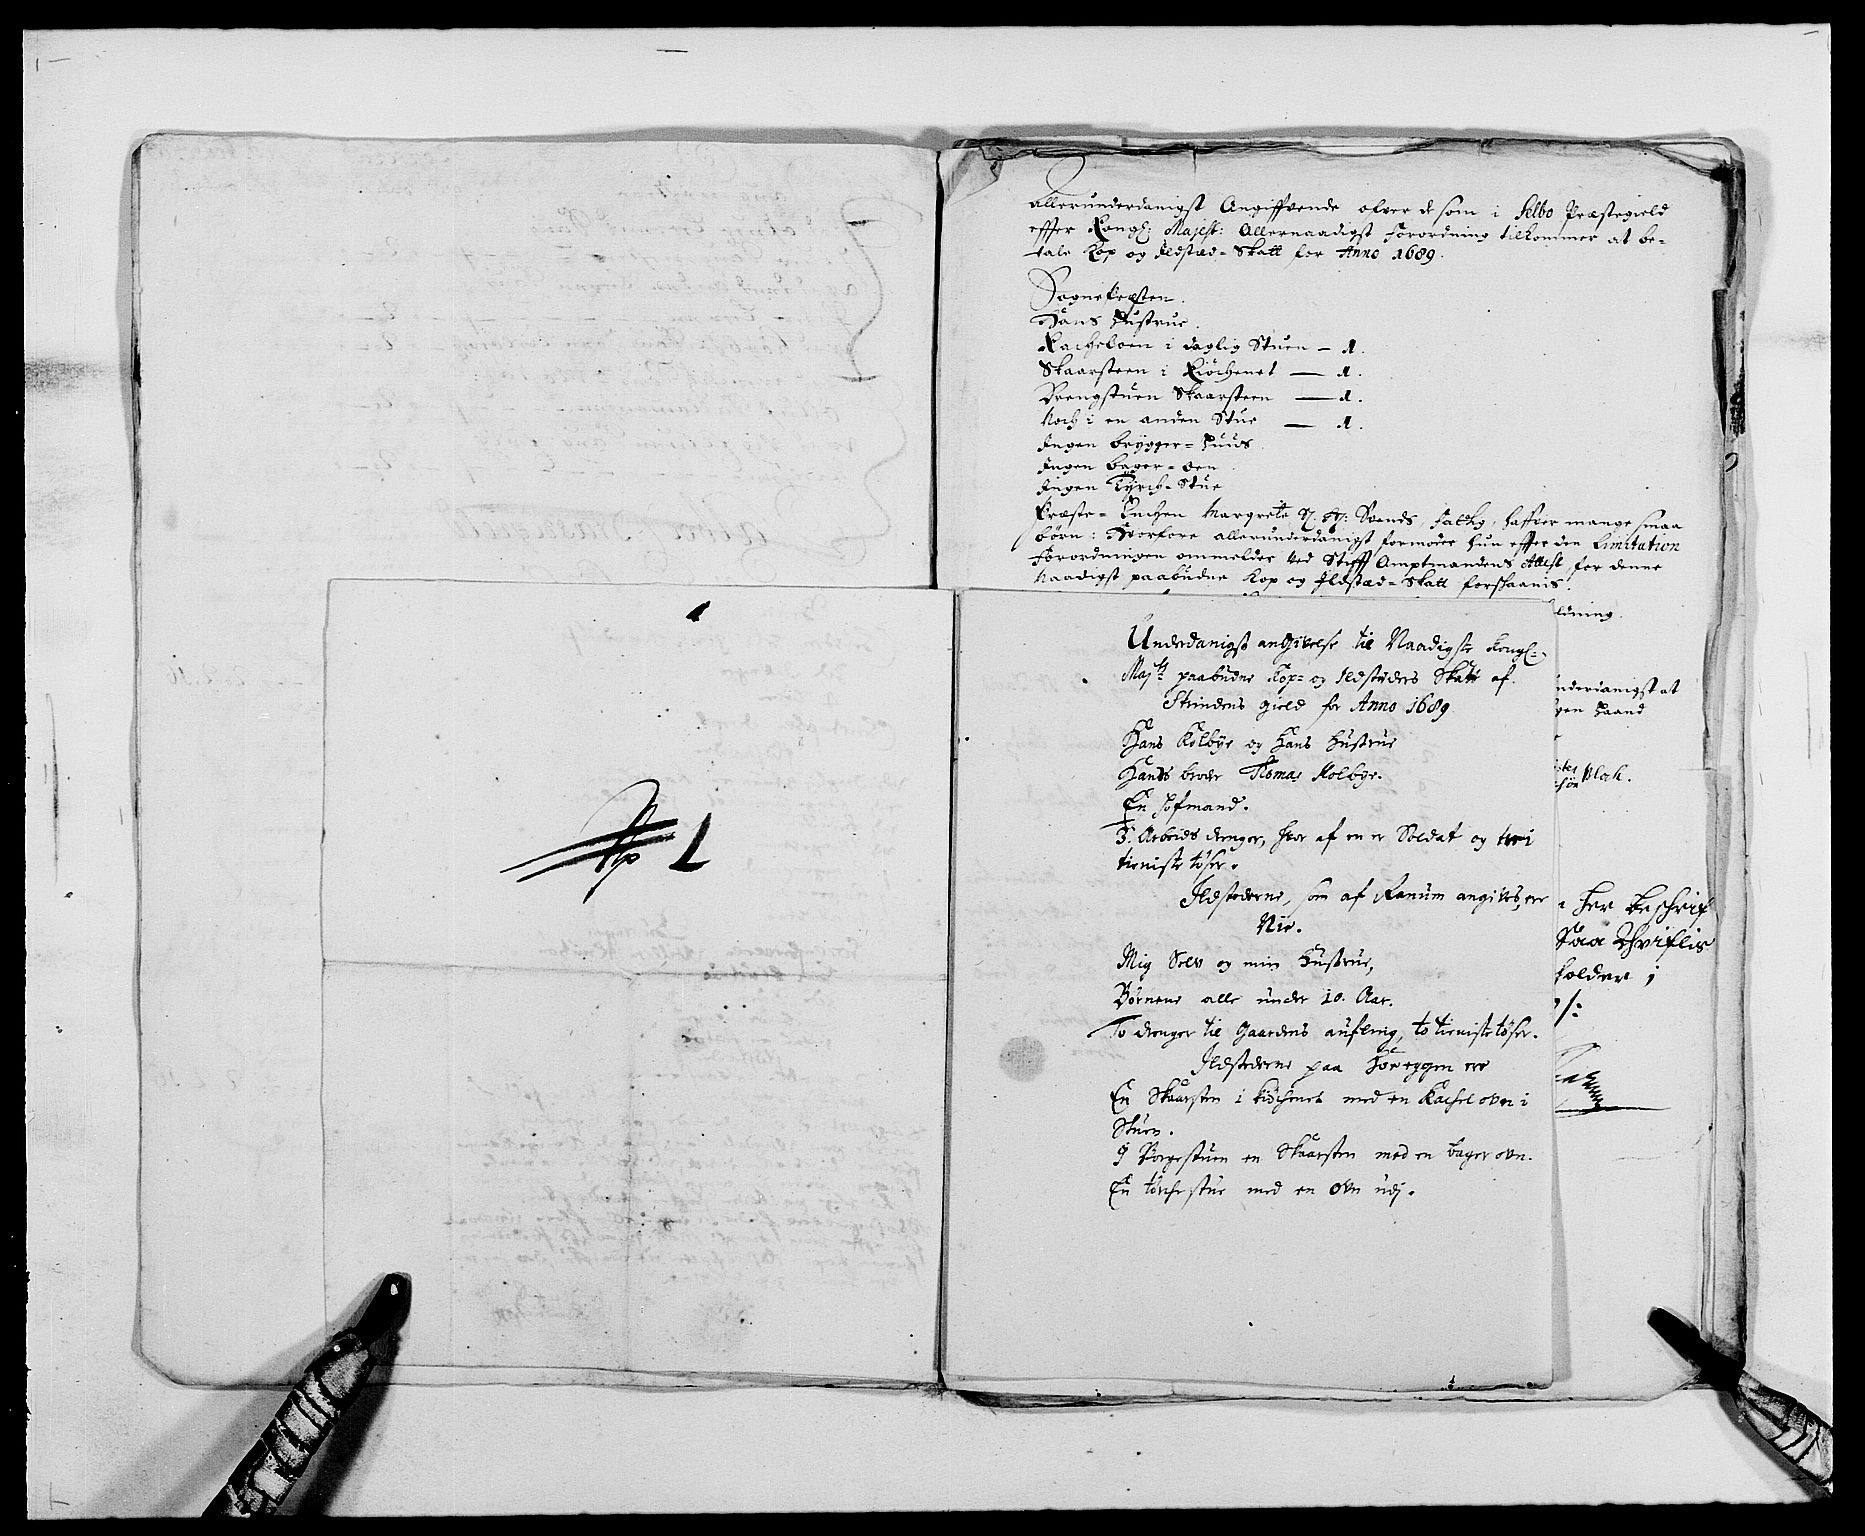 allerunderdanigst Angiffvende ofver de som i Selbo Præstegield
effter Kongl: Majest: Allernaadigst forordning tilkommer at be-
tale Kop og Ildstæd-Skatt for Anno 1689.
Sognepræsten.
Hans Hustrue.
Kacheloen i daglig Stuen - 1.
Skaarsteen i Kiöchenet - 1.
Drengstuen Skaarsteen - 1.
Noch i en anden Stue - 1.
Ingen brygger-Huus.
Ingen bager-oen.
Ingen Tyrch-Stue
Præste-Enchen Margrete Svends, fattig, haffver mange smaa
börn: Hvorfore allerunderdanigst formoder hun effter den Limitation
Forordningen ommelder ved Stifft Amptmandens Attest, for denne
Naadigst paabudne Kop og Ildstæd-Skatt forschaanis.
ldning.
underdanigst at
gen Haand
Bloch.
her beschrif
Saa Thviflis
holder i
No 1
Underdanigst angivelse til Naadigste Kongl:
Maj:tt paabudne Kop- og Ildsteders Skatt af
Strindens gield for Anno 1689
Hans Kolbye og Hans Hustrue
Hands broder Thomas Kolbye.
En Hofmand.
3. Arbeids drenger, hvor af en er Soldat og trei
tieniste töser.
Ildstederne, som af Ranum angives, ere
Nie.
Mig Selv og min Hustrue,
Börnene alle under 10. Aar.
To drenger til Gaardens aufling, to tieniste töser.
Ildstederne paa ere
En Skaarsten i kiöchenet med en Kachelovn i
Stuen.
I Borgestuen en Skaarsten med en bager ovn.
En törche stue med en ovn udi.